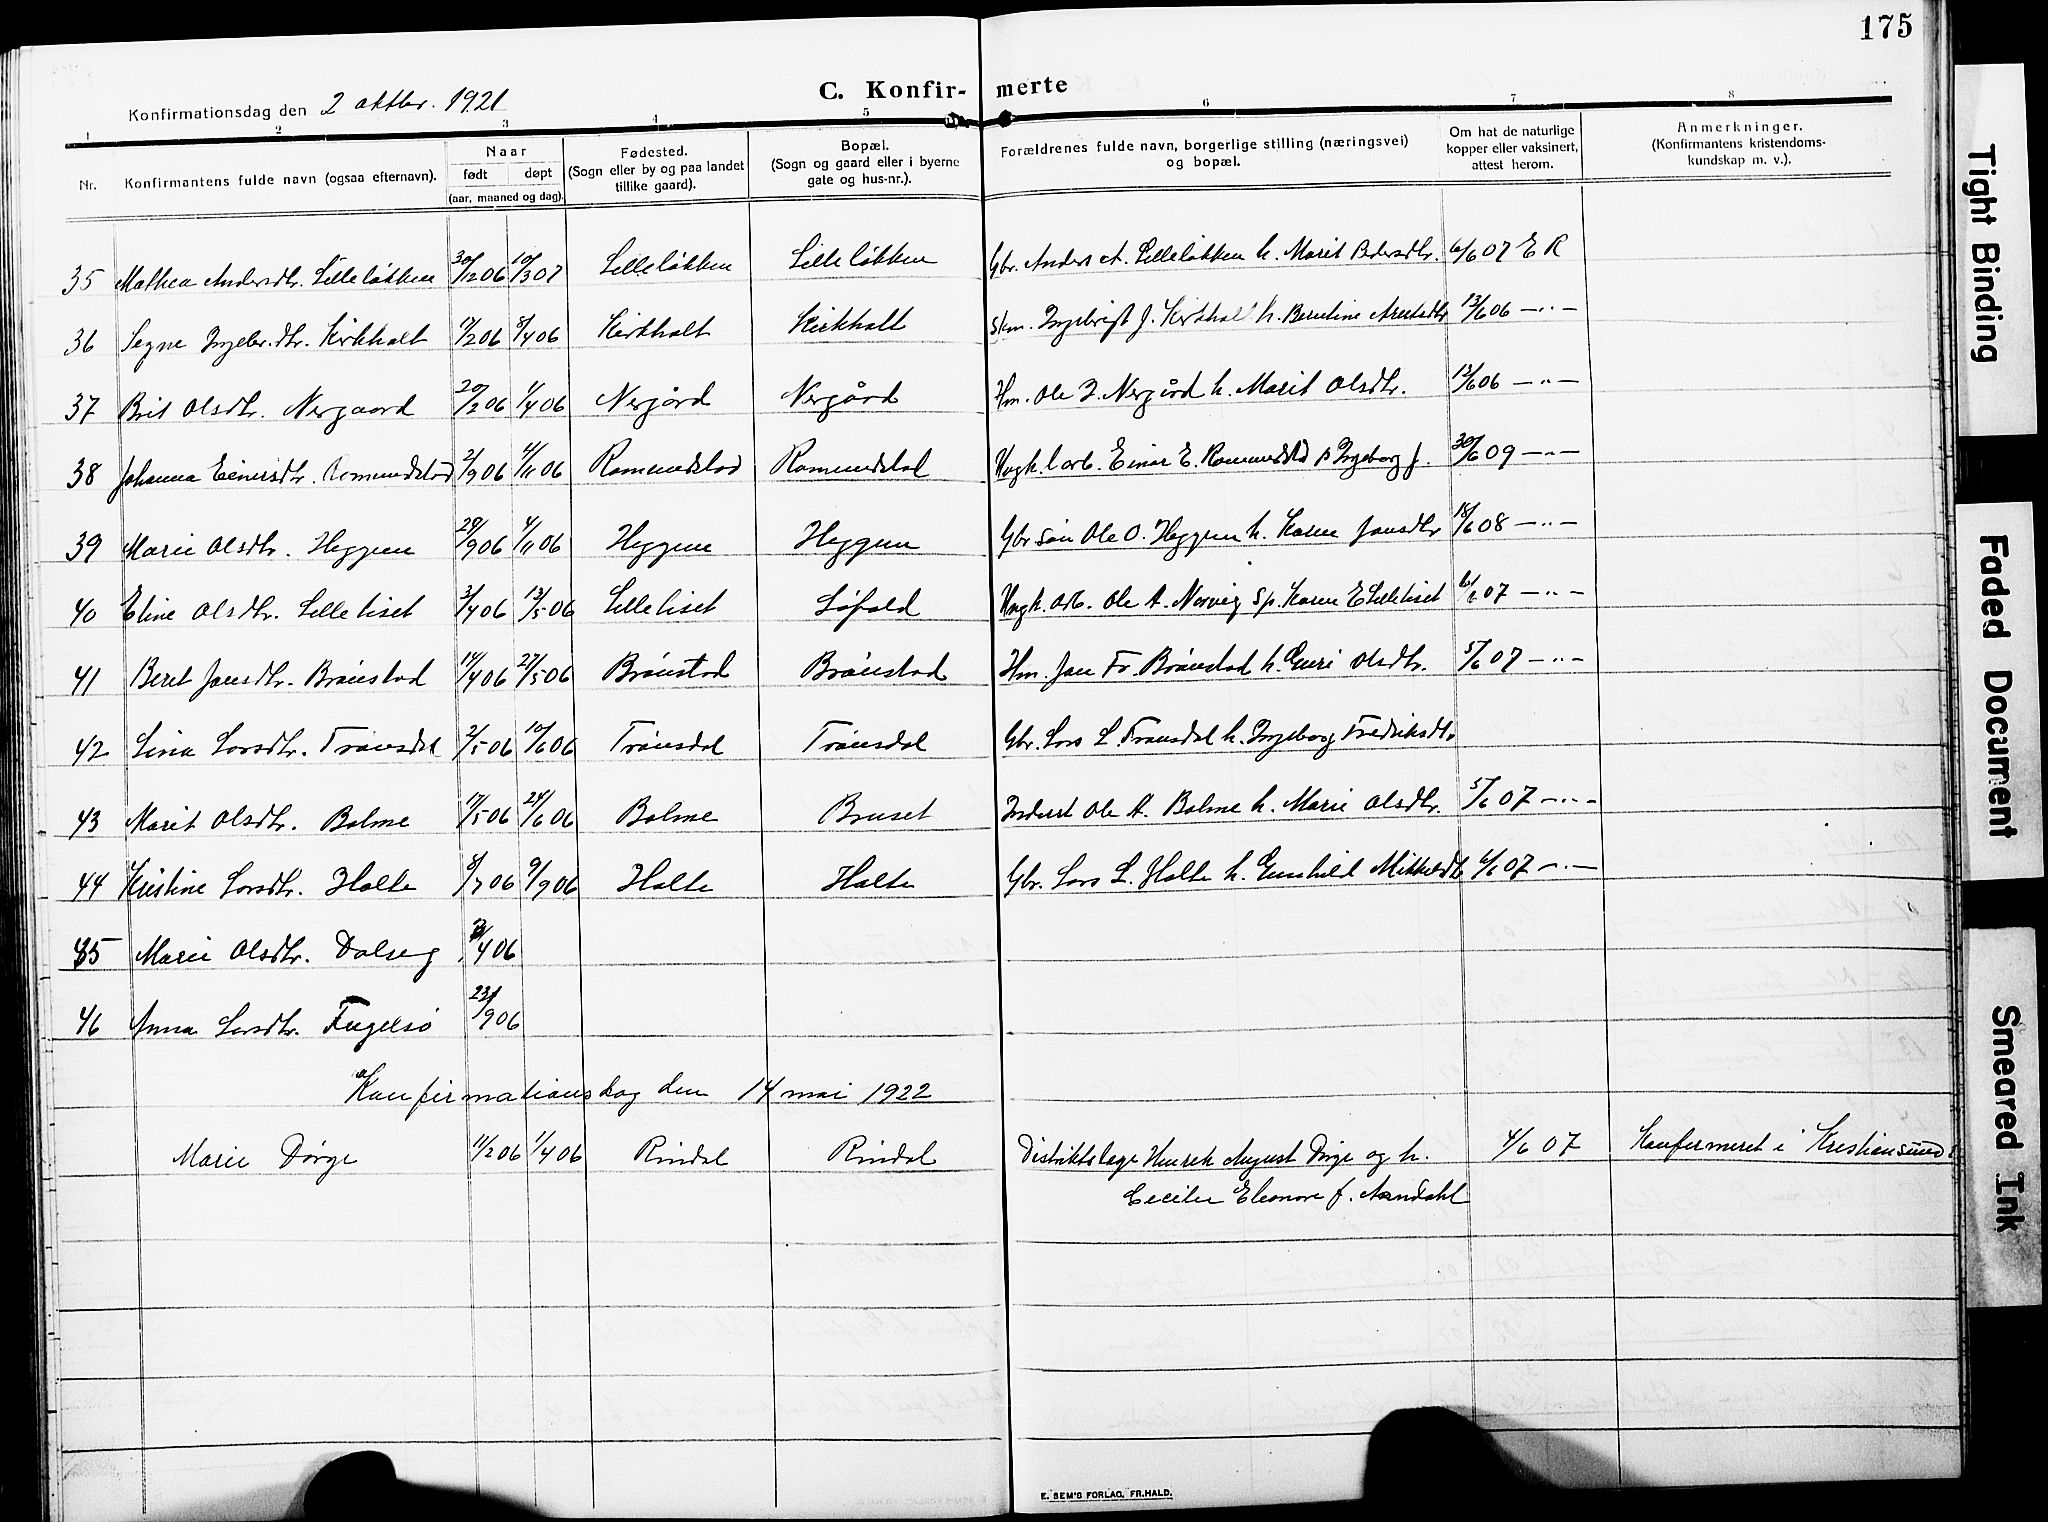 175
C. Konfir- merte
Konfirmationsdag den 2 oktbr. 1921
1 2 3 4 5 6 7 8
Nr. Konfirmantens fulde navn (ogsaa efternavn). Naar født døpt (aar, maaned og dag). Fødested. (Sogn eller by og paa landet tillike gaard). Bopæl. (Sogn og gaard eller i byerne gate og hus-nr.). Forældrenes fulde navn, borgerlige stilling (næringsvei) og bopæl. Om hat de naturlige kopper eller vaksinert, attest herom. Anmerkninger. (Konfirmantens kristendoms- kundskap m. v.).
35 Mathea Andersdtr. Lilleløkken 30/12 06 10/3 07 Lilleløkken Lilleløkken Gbr. Anders A. Lilleløkken h. Marit Pedersdtr. 6/6 07 E R
36 Segne Ingebr.dtr. Kirkholt 17/2 06 8/4 06 Kirkholt Kirkholt Skm. Ingebrigt J. Kirkhol h. Berntine 13/6 06 -"-
37 Brit Olsdtr. Nergaard 20/2 06 1/4 06 Nergård Nergård Hm. Ole I. Nergård h. Marit Olsdtr. 13/6 06 -"-
38 Johanna Einersdtr. Romundstad 2/9 06 4/11 06 Romundstad Romundstad Ungk. l arb. Einar E. Romundstad p Ingeborg J. 30/6 09 -"-
39 Marie Olsdtr. Heggem 29/9 06 4/11 06 Heggem Heggem Gbr. søn Ole O. Heggem h. Karen Jonsdtr 18/6 08 -"-
40 Eline Olsdtr. Lilleliset 3/4 06 13/5 06 Lilleliset Løfald Ungk. Arb. Ole A. Nervig Sp. Karen E Lilleliset 6/6 07 -"-
41 Beret Jonsdtr. Brønstad 14/4 06 27/5 06 Brønstad Brønstad Hm. Jon Fr. Brønstad h. Guri Olsdtr. 5/6 07 -"-
42 Lina Larsdtr. Trønsdal 2/5 06 10/6 06 Trønsdal Trønsdal Gbr. Lars L. Trønsdal h. Ingeborg Fredriksdtr
43 Marit Olsdtr. Bolme 17/5 06 24/6 06 Bolme Bruset Inderst Ole A. Bolme h. Marie Olsdtr. 5/6 07 -"-
44 Kristine Larsdtr. Holte 8/7 06 9/9 06 Holte Holte Gbr. Lars L. Holte h. Gunhild Mikkelsdtr 6/6 07 -"-
45 Marie Olsdtr. Dalseg /4 06
46 Anna Larsdtr. Fugelsø 23/9 06
Konfirmationsdag den 14 mai 1922
Marie Dørge 11/2 06 1/4 06 Rindal Rindal Distriktslæge Henrik August Dørge og h. 4/6 07 Konfirmeret i Kristiansund
Cecilie Eleonore f. Arndahl
E. SEM'S FORLAG, FR.HALD.
Tight Binding
Faded Document
Smeared Ink